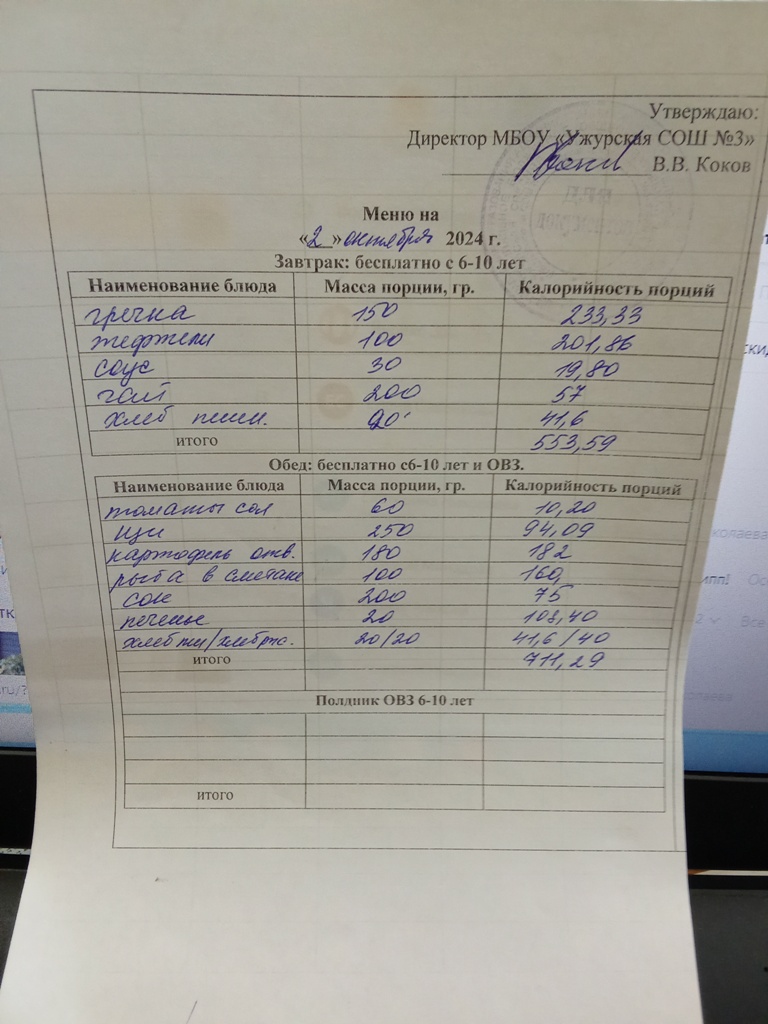 Утверждаю:
Директор МБОУ «Ужурская СОШ №3»
В.В. Коков
Меню на
«2» октября 2024 г.
Завтрак: бесплатно с 6-10 лет
Наименование блюда Масса порции, гр. Калорийность порций
гречка 150 233,33
тефтели 100 201,86
соус 30 19,80
чай 200 57
хлеб пшен. 20 41,6
итого 553,59
Обед: бесплатно с6-10 лет и ОВЗ.
Наименование блюда Масса порции, гр. Калорийность порций
томаты сол 60 10,20
щи 250 94,09
картофель отв. 180 182
рыба в сметане 100 160,
сок 200 75
печенье 20 108,40
хлеб пш/хлеб рж. 20/20 41,6/40
итого 711,29
Полдник ОВЗ 6-10 лет
итого